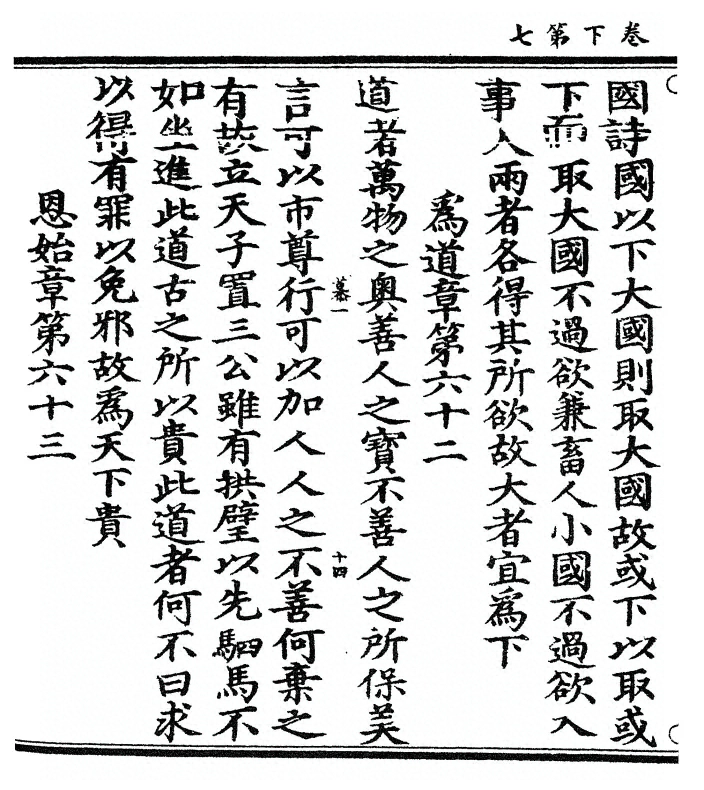 卷下第七
國詩國以下大國則取大國故或下以取或
下而取大國不過欲兼畜人小國不過欲入
事人兩者各得其所欲故大者宜爲下
爲道章第六十二
道者萬物之奧善人之寶不善人之所保美
慕一
十四
言可以市尊行可以加人人之不善何棄之
有故立天子置三公雖有拱璧以先駟馬不
如坐進此道古之所以貴此道者何不曰求
以得有罪以免邪故爲天下貴
恩始章第六十三